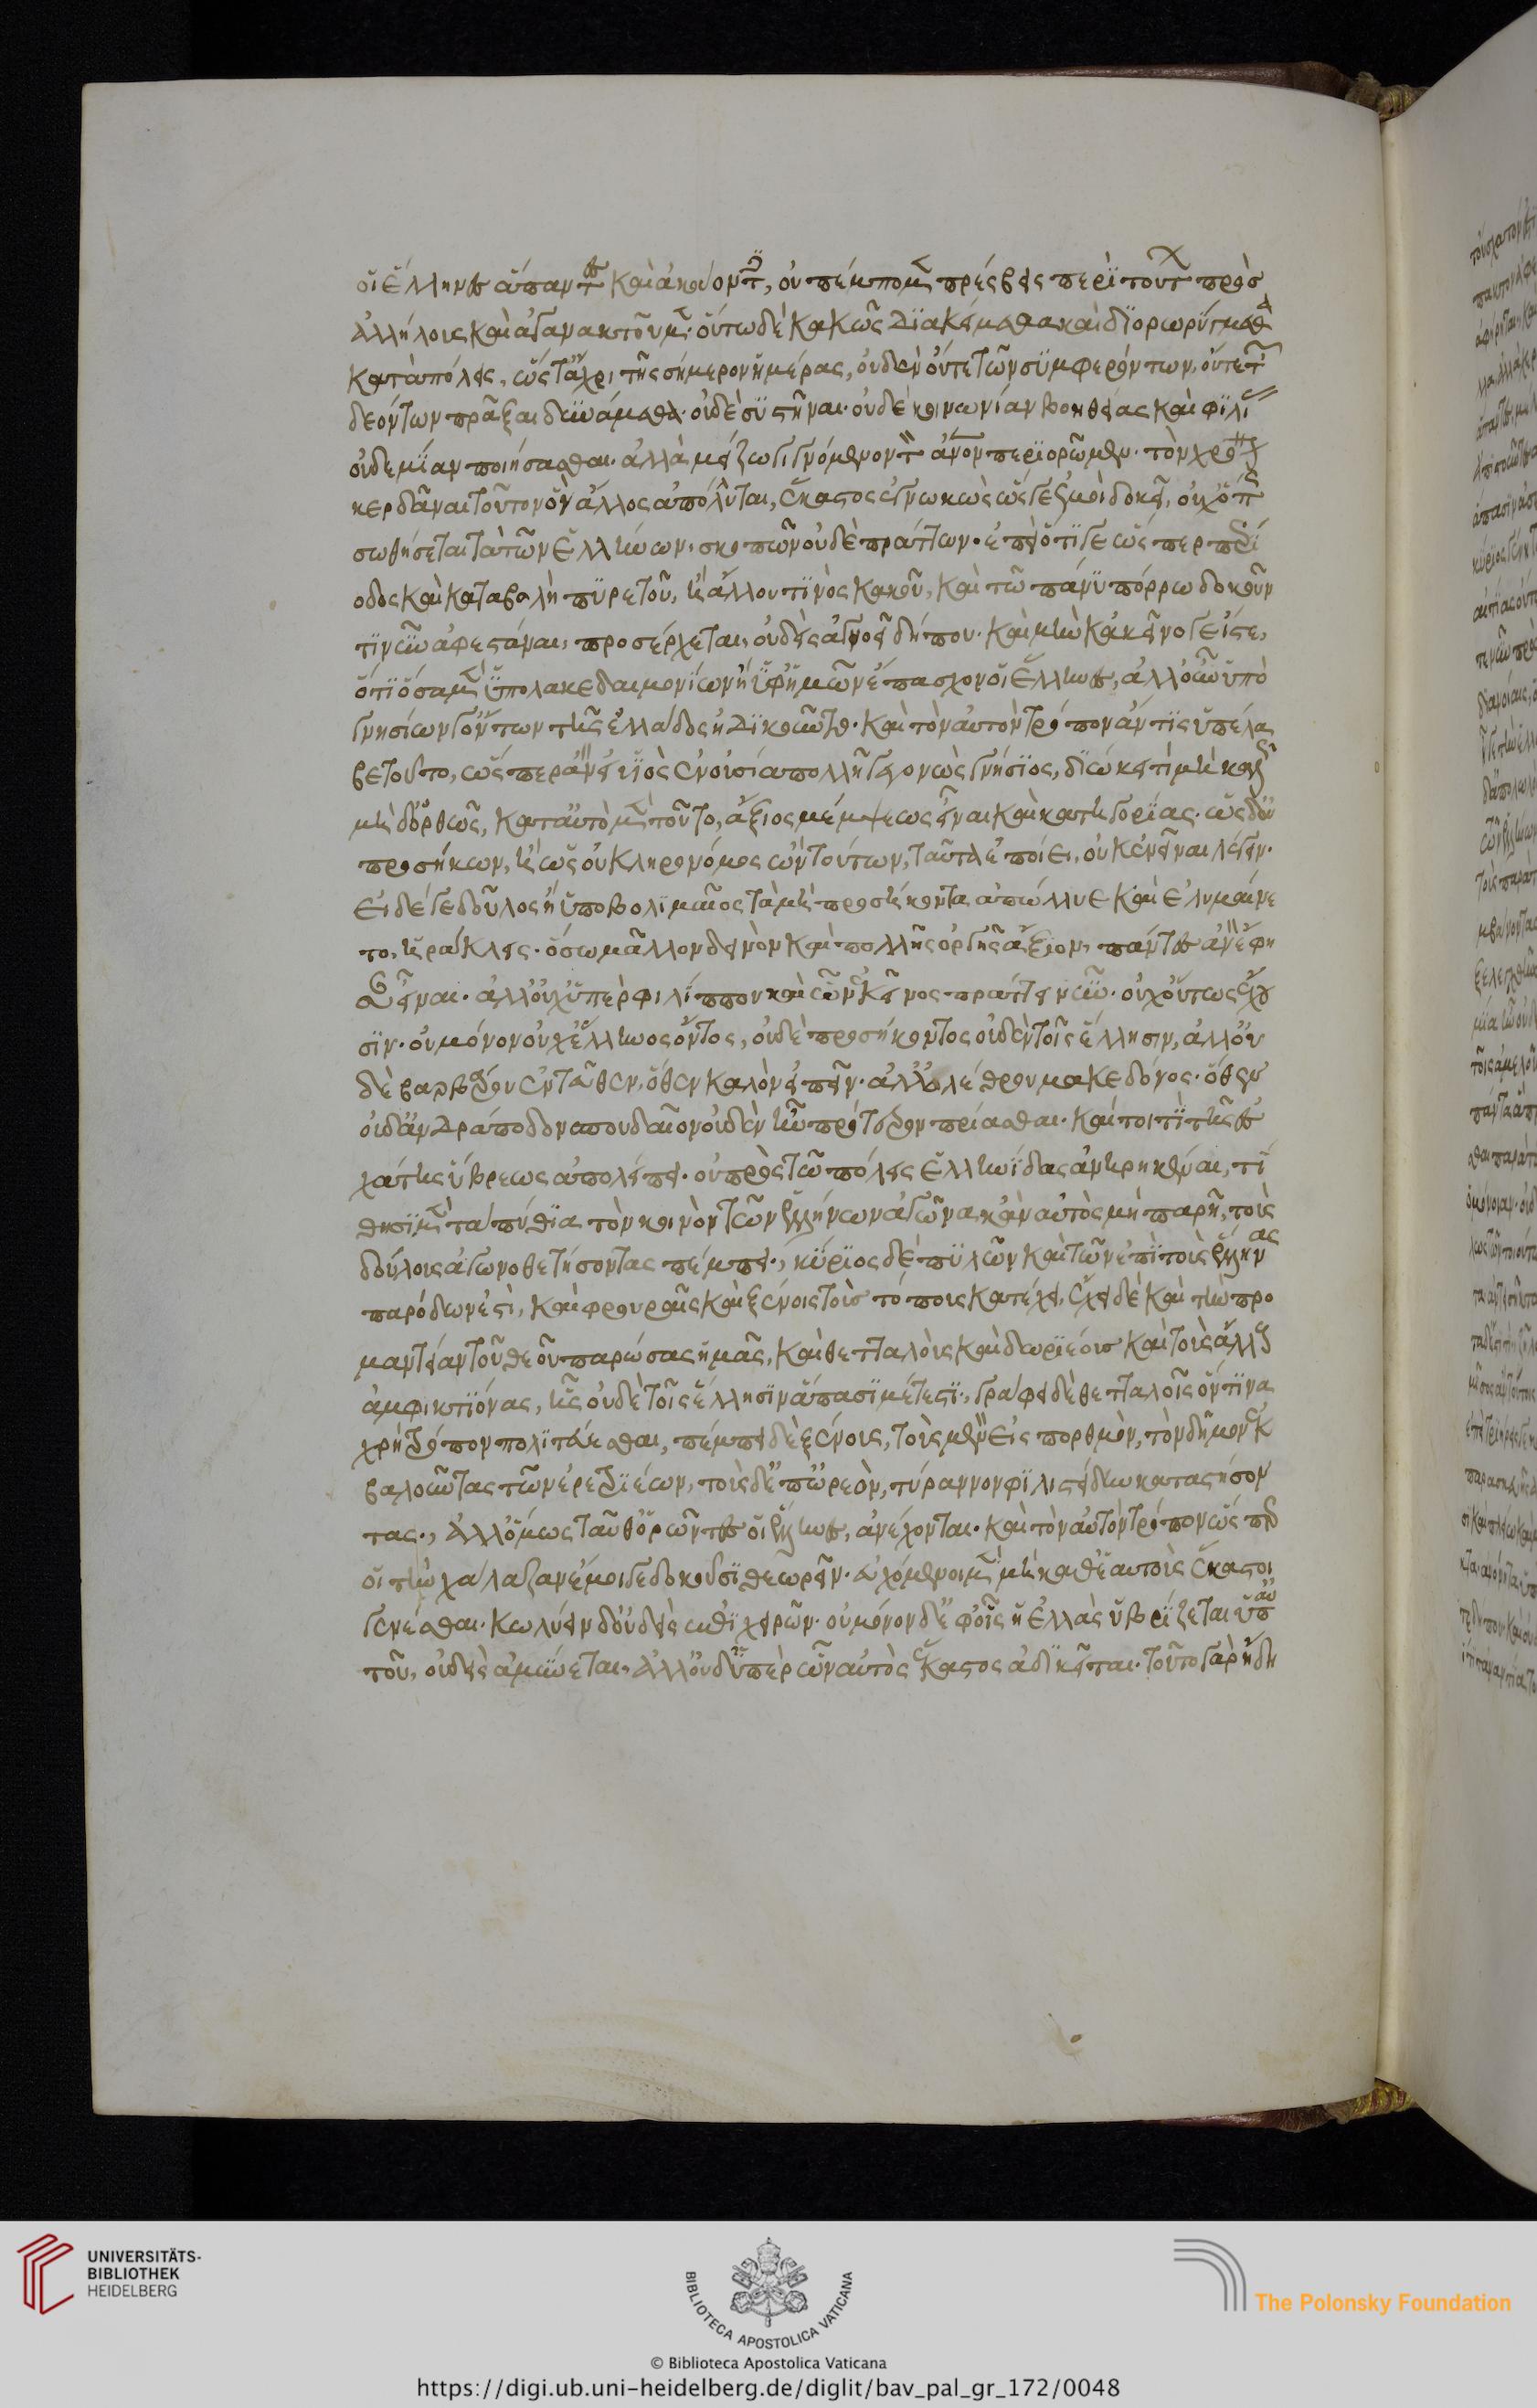 οἱ ἕλληνες ἅπαντες καὶ ἀκούοντες, οὐ πέμπομεν πρέσβεις περὶ τούτων πρὸς
ἀλλήλους καὶ ἀγανακτοῦμεν. οὕτω δὲ κακῶς διακείμεθα καὶ διορωρύγμεθα
κατὰ πόλεις, ὥστ' ἄχρι τῆς σήμερον ἡμέρας, οὐδὲν οὔτε τῶν συμφερόντων, οὔτε τῶν
δεόντων πρᾶξαι δυνάμεθα. οὐδὲ συστῆναι. οὐδὲ κοινωνίαν βοηθείας καὶ φιλίας
οὐδεμίαν ποιήσασθαι. ἀλλὰ μείζω γιγνόμενον τὸν ἄνθρωπον περιορῶμεν. τὸν χρόνον
κερδᾶναι τοῦτον ὃν ἄλλος ἀπόλλυται, ἕκαστος ἐγνωκὼς ὥς γε ἐμοὶ δοκεῖ, οὐχ ὅπως
σωθήσεται τὰ τῶν ἑλλήνων, σκοπῶν οὐδὲ πράττων. ἐπεὶ ὅτι γε ὥσπερ περί
οδος καὶ καταβολὴ πυρετοῦ, ἢ ἄλλου τινὸς κακοῦ, καὶ τῶ πάνυ πόρρω δοκοῦν
τι νῦν ἀφεστάναι, προσέρχεται, οὐδεὶς ἀγνοεῖ δήπου. καὶ μὴν κἀκεῖνο γε ἴστε,
ὅτι ὅσα μὲν ὑπὸ λακεδαιμονίων ἢ ὑφ' ἡμῶν ἔπασχον οἱ ἕλληνες, ἀλλ' οὖν ὑπὸ
γνησίων γ' ὄντων τῆς ἑλλάδος ἠδικοῦντο. καὶ τὸν αὐτὸν τρόπον ἄν τις ὑπέλα
βε τοῦτο, ὥσπερ ἂν εἰ υἱὸς ἐν οὐσία πολλῆ γεγονὼς γνήσιος, διώκει τι μὴ καλῶς
μὴδ' ὀρθῶς, κατ' αὐτὸ μὲν τοῦτο, ἄξιος μέμψεως εἶναι καὶ κατηγορίας. ὡς δ' οὐ
προσήκων, ἢ ὡς οὐ κληρονόμος ὢν τούτων, ταῦτα ἐποίει, οὐκ ἐνεῖναι λέγειν.
εἰ δέ γε δοῦλος ἢ ὑποβολιμαῖος τὰ μὴ προσήκοντα ἀπώλλυε καὶ ἐλυμαίνε
το, ἡράκλεις. ὅσω μᾶλλον δεινὸν καὶ πολλῆς ὀργῆς ἄξιον, πάντες ἂν ἔφη
σαν εἶναι. ἀλλ' οὐχ ὑπὲρ φιλίππου καὶ ὧν ἐκεῖνος πράττει νῦν. οὐχ οὕτως ἔχου
σιν. οὐ μόνον οὐχ ἕλληνος ὄντος, οὐδὲ προσήκοντος οὐδὲν τοῖς ἕλλησιν, ἀλλ' οὐ
δὲ βαρβάρου ἐντεῦθεν, ὅθεν καλὸν εἰπεῖν. ἀλλ' ὀλέθρου μακεδόνος. ὅθεν
οὐδ' ἀνδράποδον σπουδαῖον οὐδὲν ἦν πρότερον πρίασθαι. καίτοι τί τῆς ἐ
χάτης ὕβρεως ἀπολείπει. οὐ πρὸς τῶ πόλεις ἑλληνίδας ἀνηρηκέναι, τί
θησι μὲν τὰ πύθια τὸν κοινὸν τῶν ἑλλήνων ἀγῶνα, κἂν αὐτὸς μὴ παρῆ, τοὺς
δούλους ἀγωνοθετήσοντας πέμπει, κύριος δὲ πυλῶν καὶ τῶν ἐπὶ τοὺς ἕλληνας
παρόδων ἐστὶ, καὶ φρουραῖς καὶ ξένοις τοὺς τόπους κατέχει, ἔχει δὲ καὶ τὴν προ
μαντείαν τοῦ θεοῦ παρώσας ἡμᾶς, καὶ θετταλοὺς καὶ δωριέους καὶ τοὺς ἄλλους
ἀμφικτιόνας, ἧς οὐδὲ τοῖς ἕλλησιν ἅπασι μέτεστι, γράφει δὲ θετταλοῖς ὅντινα
χρὴ τρόπον πολιτεύεσθαι, πέμπει δὲ ξένους, τοὺς μὲν εἰς πορθμὸν, τὸν δῆμον ἐκ
βαλοῦντας τῶν ἐρετριέων, τοὺς δ' ἐπ' ὠρεὸν, τύραννον φιλιστείδην καταστήσον
τας. ἀλλ' ὅμως ταῦθ' ὁρῶντες οἱ ἕλληνες, ἀνέχονται. καὶ τὸν αὐτὸν τρόπον ὥσπερ
οἱ τὴν χάλαζαν ἔμοιγε δοκοῦσι θεωρεῖν. εὐχόμενοι μὲν μὴ καθ' ἑαυτοὺς ἕκαστοι
γενέσθαι. κωλύειν δ' οὐδεὶς ἐπιχειρῶν. οὐ μόνον δ' ἐφ' οἷς ἡ ἑλλὰς ὑβρίζεται ὑπ' αὐ
τοῦ, οὐδεὶς ἀμύνεται, ἀλλ' οὐδ' ὑπὲρ ὧν αὐτὸς ἕκαστος ἀδικεῖται. τοῦτο γὰρ ἤδη
UNIVERSITÄTS-
BIBLIOTHEK
HEIDELBERG
BIBLIOTECA APOSTOLICA VATICANA
The Polonsky Foundation
© Biblioteca Apostolica Vaticana
https://digi.ub.uni-heidelberg.de/diglit/bav_pal_gr_172/0048